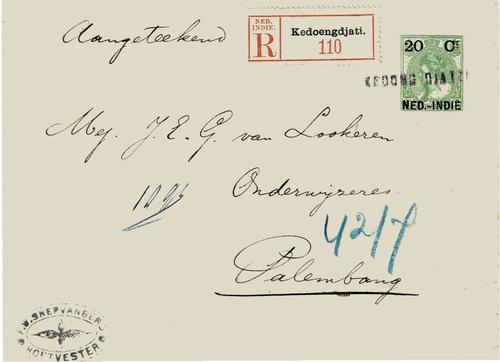 Aangeteekend
NED. INDIE.
R
Kedoengdjati.
110
20 Ct
KEDONG DJATTI
NED.-INDIË
Mej. J. E. G. van Lookeren
Onderwijzeres
42/7
Palembang
F.W. SNEPVANGERS
HOUTVESTER